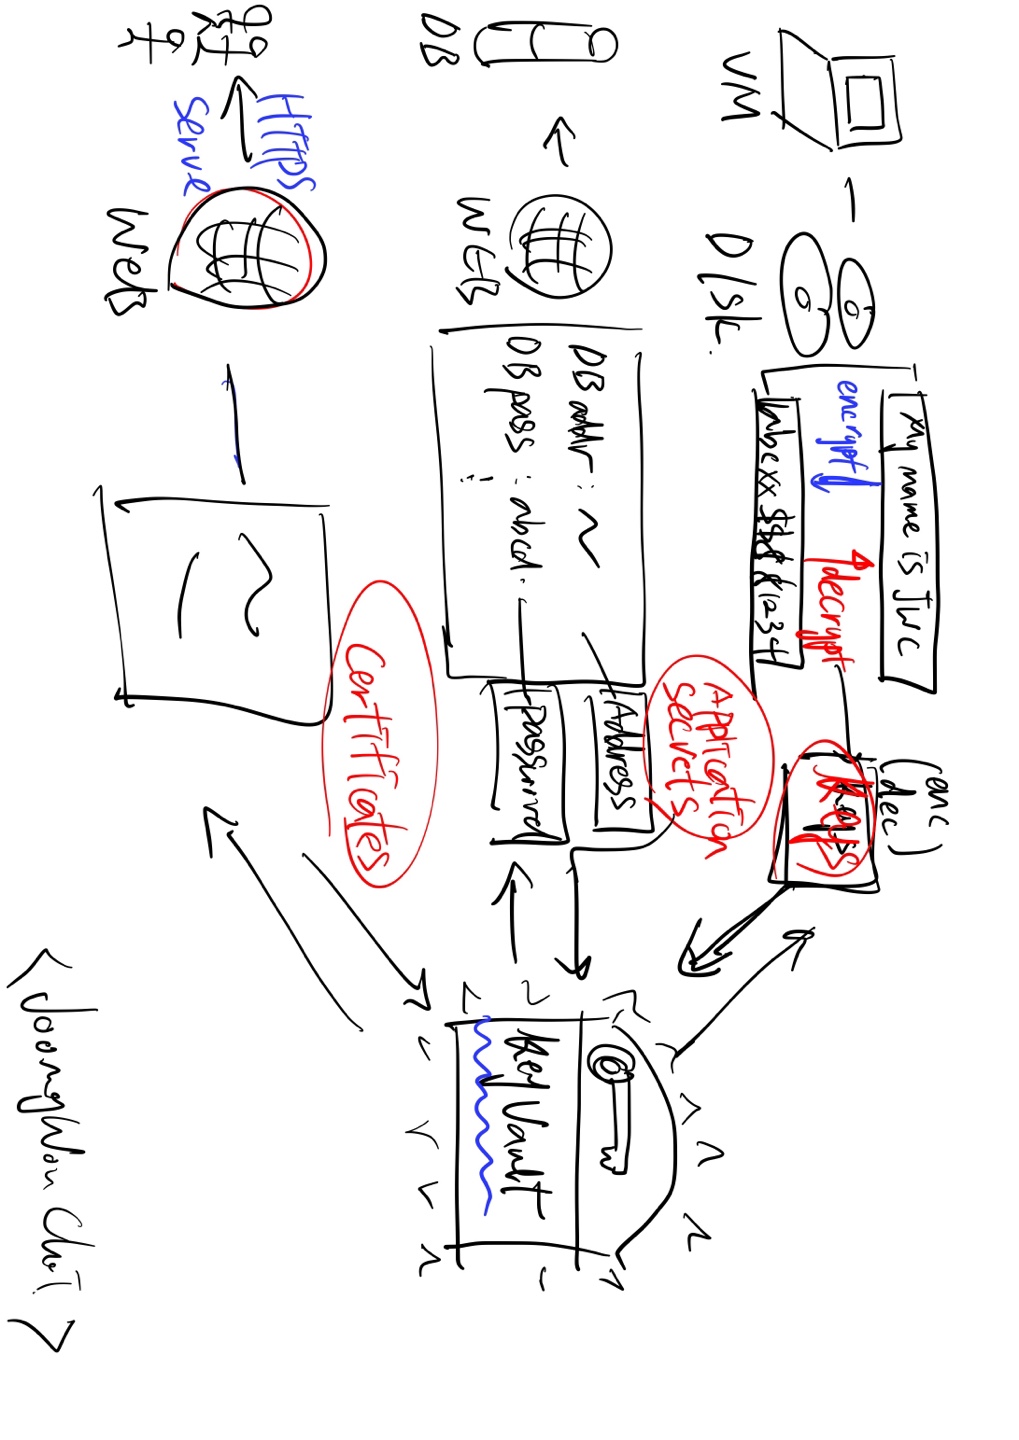 VM
Disk.
My name is JWC
encrypt
decrypt
(enc
dec)
Keys
DB
WEB
DB addr : ~
DB pass : abcd.
Address
password
Application
secrets
HTTPS
Serve
WeB
Certificates
Key Vault
<JoongWon Chai>